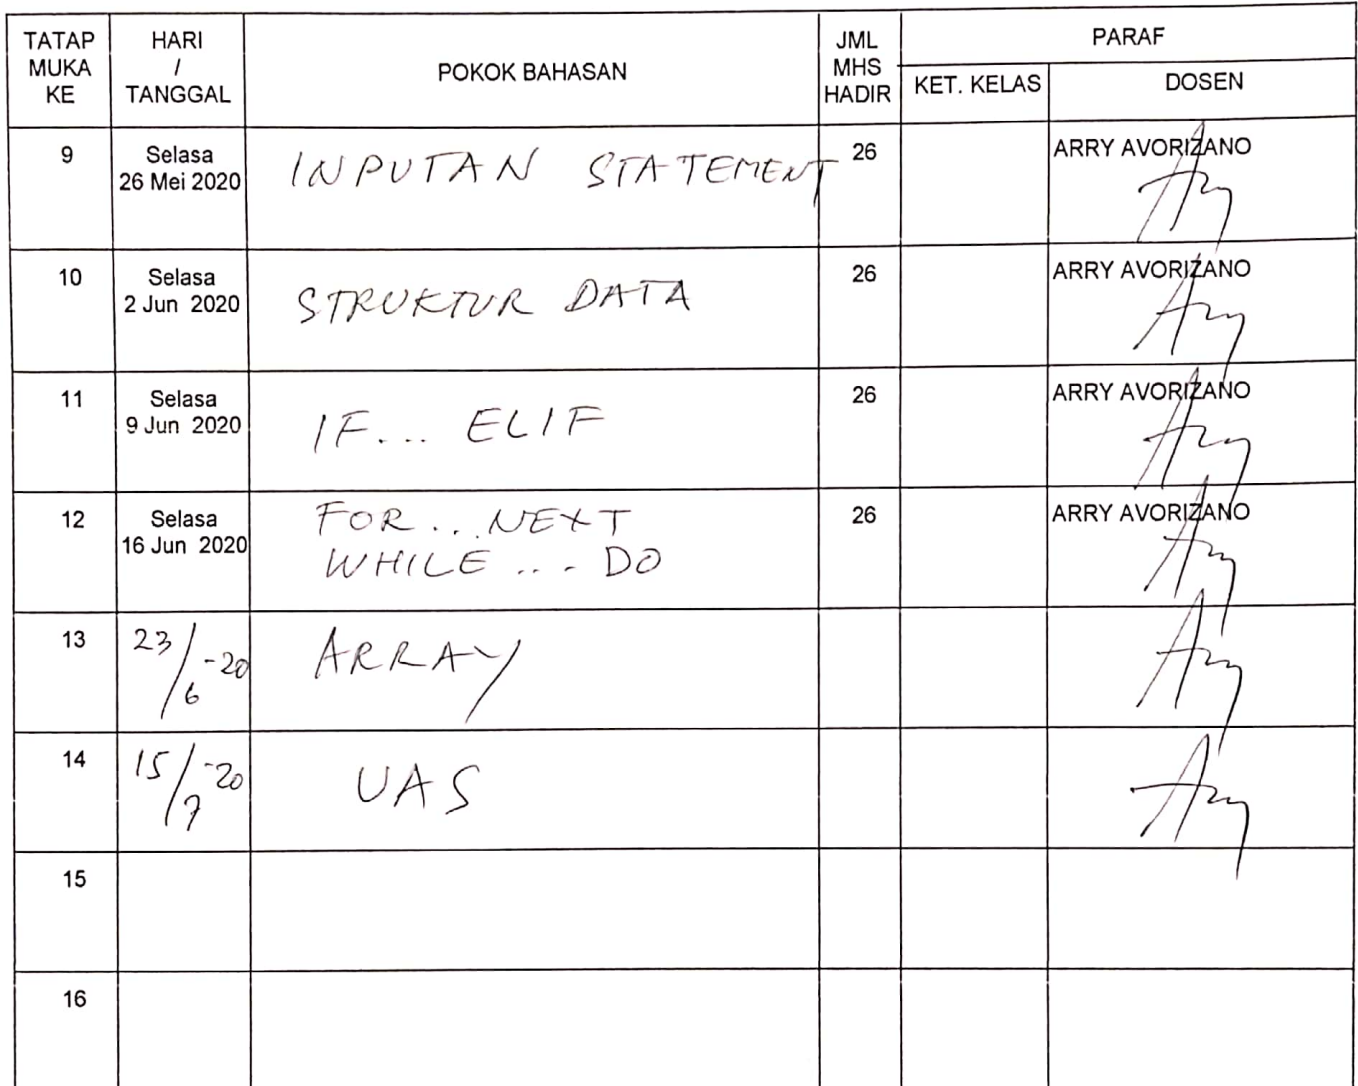 TATAP MUKA KE HARI / TANGGAL POKOK BAHASAN JML MHS HADIR PARAF
KET. KELAS DOSEN
9 Selasa 26 Mei 2020 INPUTAN STATEMENT 26 ARRY AVORIZANO
10 Selasa 2 Jun 2020 STRUKTUR DATA 26 ARRY AVORIZANO
11 Selasa 9 Jun 2020 IF... ELIF 26 ARRY AVORIZANO
12 Selasa 16 Jun 2020 FOR... NEXT 26 ARRY AVORIZANO
WHILE ... DO
13 23/6-20 ARRAY
14 15/7-20 UAS
15
16